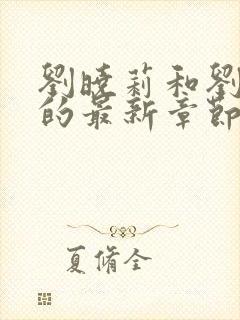 劉曉莉和劉
的最新章節
夏脩全